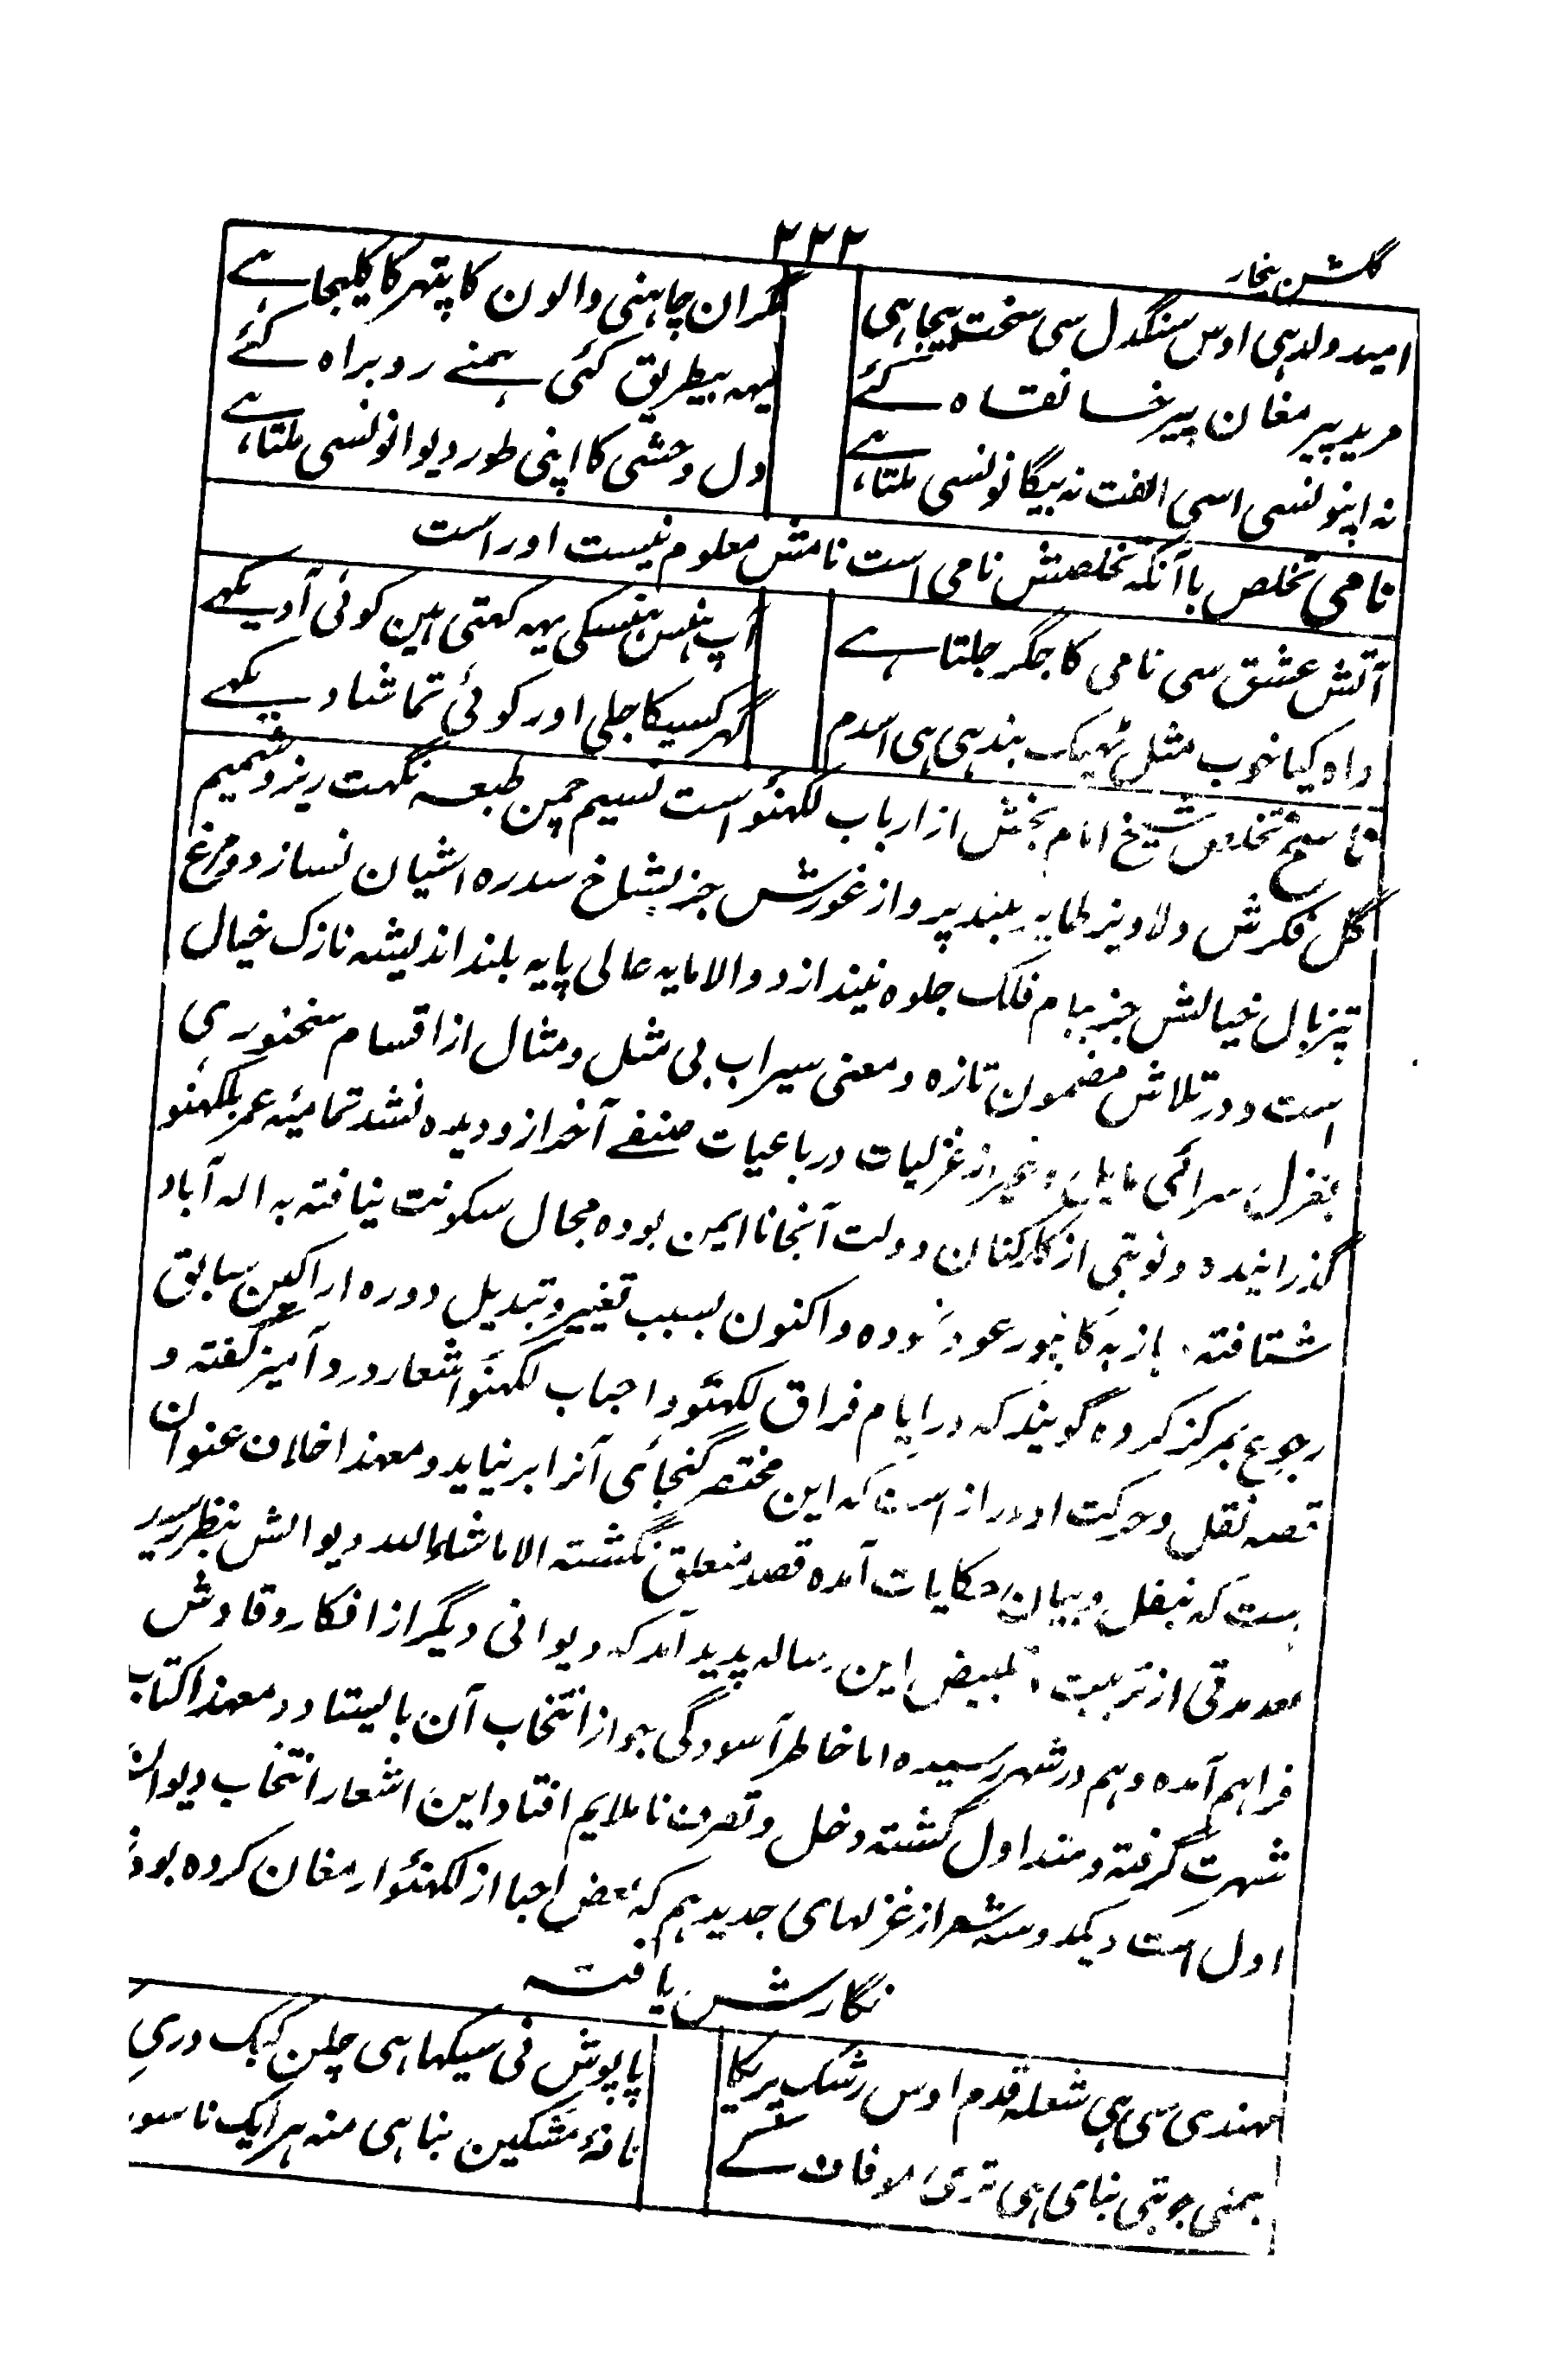 گلشن بیخار
۲۲۲
امید دلدہی اوس سنگدل سی سخت بیجا ہی
مگر ان چاہنی والون کا پتھر کا کلیجا ہے
مرید پیر مغان پیر خانقاہ کئے
یہہ بیطریق کئی ہمنے روبراہ کئے
نہ اپنونسی اسی الفت نہ بیگانونسی ملتا ہے
دل وحشی کا اپنی طور دیوانونسی ملتا ہے
نامی تخلص با آنکہ تخلصش نامی است نامش معلوم نیست اوراست
آتش عشق سی نامی کا جگر جلتا ہے
آپ ہنس ہنسکی یہہ کہتی ہین کوئی آدیکہے
واہ کیا خوب مثل ٹھیک بندہی ہی اسدم
گہر کسیکا جلی اور کوئی تماشا دیکہے
ناسخ تخلص شیخ امام بخش از ارباب لکہنؤ است نسیم چمن طبعہ نگہت ریز و شمیم
گل فکرش دلاویز طایر بلند پرواز غورش جز بشاخ سدرہ اشیان نسازد و مرغ
تیز بال خیالش جز ببام فلک جلوہ نیندازد والا مایہ عالی پایہ بلند اندیشہ نازک خیال
است و در تلاش مضمون تازہ و معنی سیراب بی مثل و مثال از اقسام سخنوری
بغزل سرائی مایل بغیر از غزلیات و رباعیات صنفے آخر ازو دیدہ نشد تمامیئہ عمر بلکہنو
گذرانیدہ و نوبتی از کارکنان دولت آنجا نا ایمن بودہ مجال سکونت نیافتہ بہ الہ آباد
شتافتہ باز بہ کانپور عود نمودہ و اکنون بسبب تغییر و تبدیل دورہ اراکین سابق
رجوع بمرکز کردہ گویند کہ در ایام فراق لکہنؤ و احباب لکہنؤ اشعار درد آمیز گفتہ و
قصہ نقل و حرکت او دراز است کہ این مختصر گنجائی آنرا بر نیاید و معہذا خلاف عنوان
ہست کہ بنقل و بیان حکایات آمدہ قصد متعلق نگشتہ الا ماشاء اللہ دیوانش بنظر رسید
بعد مدتی از تربیت تبییض این رسالہ پدید آمد کہ دیوانی دیگر از افکار وقادش
فراہم آمدہ و ہم در شہر رسیدہ اما خاطر آسودگی جو از انتخاب آن بالیستاد و معہذا کتاب
شہرت گرفتہ و متداول گشتہ دخل و تصرف ناملایم افتاد این اشعار انتخاب دیوان
اول است و یکدو سہ شعر از غزلہای جدید ہم کہ بعض احبا از لکہنؤ ارمغان کردہ بود
نگارش یافتہ
مہندی سی ہی شعلہ قدم اوس رشک پریکا
پاپوش نی سیکہا ہی چلن کبک دری
ہمنی جو تبی بنای ہی تری موفاف کے
نافۂ مشکین بنا ہی منہ ہر ایک ناسور